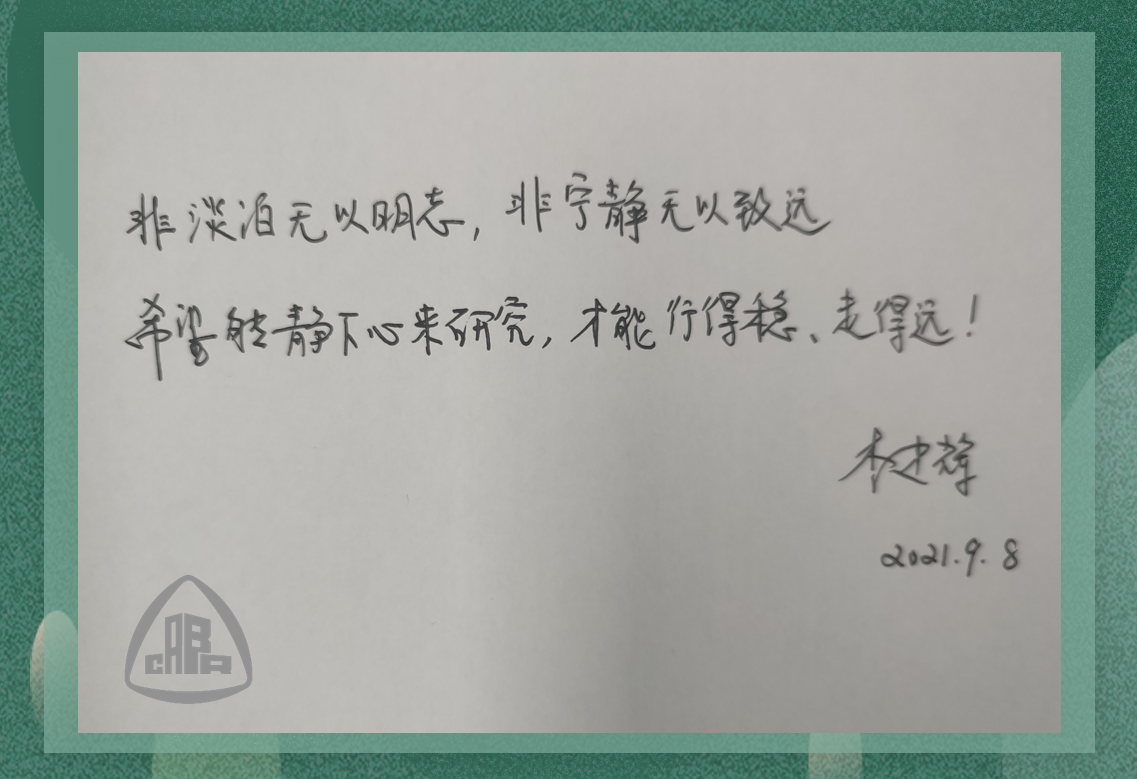 非淡泊无以明志，非宁静无以致远
希望能静下心来研究，才能行得稳、走得远！
2021.9.8
CABR